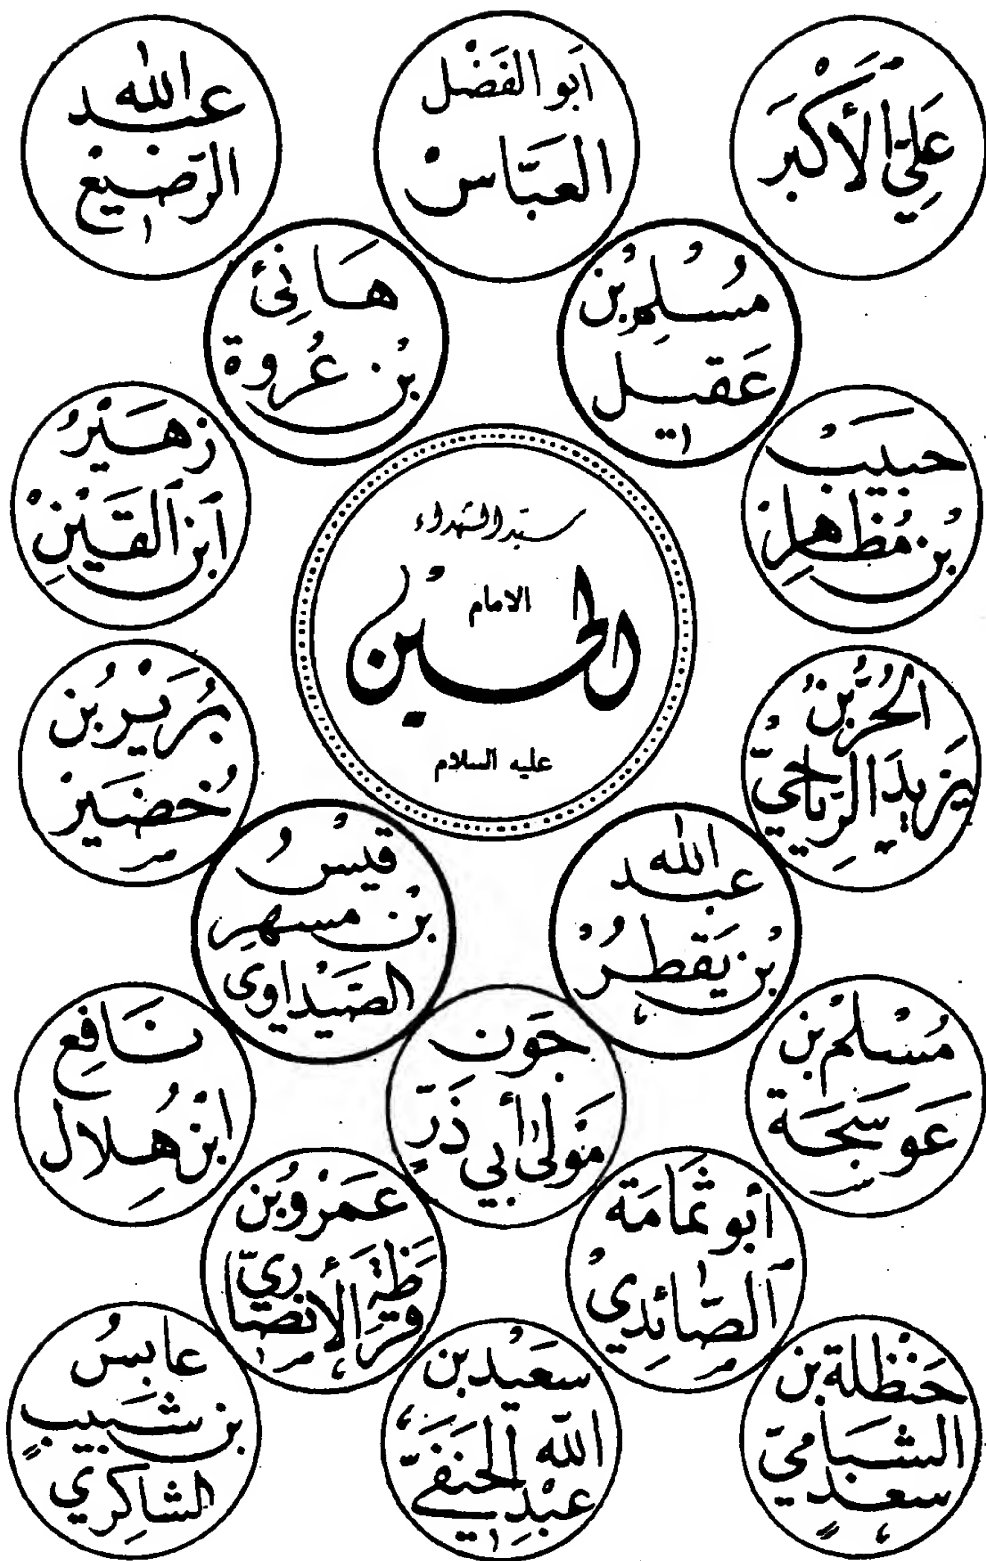 عَلِيّ الأَكْبَر
أَبُو الفَضْل
العَبَّاس
عبد الله
الرَّضِيع
مُسْلِم بْن
عَقِيل
هَانِئ
بْن عُرْوَة
حَبِيب
بْن مُظَاهِر
زُهَيْر
ابْن القَيْن
سيد الشهداء
الامام
الحسين
عليه السلام
الحُرّ بْن
يَزِيد الرِّيَاحِيّ
بُرَيْر بْن
خُضَيْر
عبد الله
بْن يَقْطُر
قَيْس
بْن مسهر
الصَّيْدَاوي
مُسْلِم بْن
عَوْسَجَة
جَوْن
مَوْلَى أَبِي ذَرّ
نَافِع
ابْن هِلَال
أَبُو ثُمَامَة
الصَّائِدِي
عَمْرو بْن
قرظة الأَنْصَارِيّ
حَنْظَلَة بْن
سعد الشِّبَامِيّ
سَعِيد بْن
عَبْد الله الحَنَفِيّ
عابس
بْن شَبِيب
الشَّاكِرِي